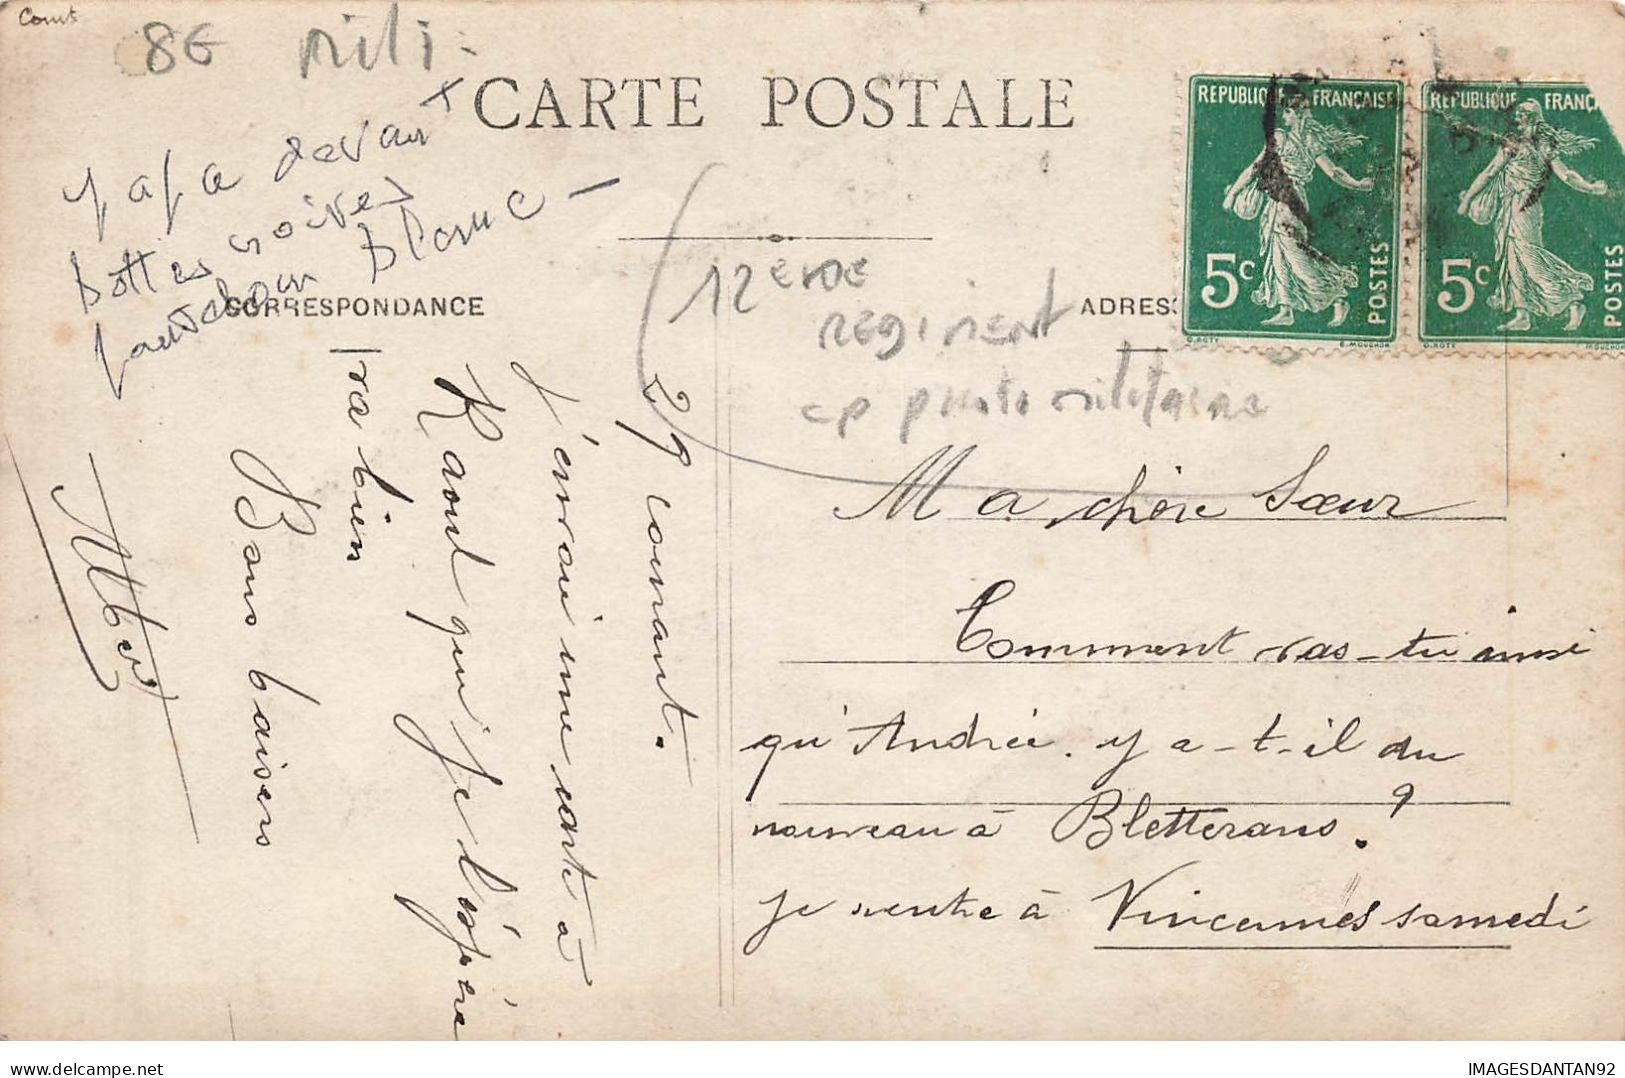 Comt
8€ mili
CARTE POSTALE
papa devant
bottes noires
pantalon blanc
CORRESPONDANCE
ADRES
12eme
REGIMENT
cp photo militaire
REPUBLIQUE FRANÇAISE
5c
POSTES
O. ROTY
E. MOUCHON
REPUBLIQUE FRANÇ
5c
POSTES
O. ROTY
MOUCHON
Ma chère Sœur
Comment vas-tu ainsi
qu'Andrée. y a-t-il du
nouveau à Bletterans ?
je rentre à Vincennes samedi
2/9 courant.
J'envoie une carte à
Raoul qui je l'espère
va bien
Bons baisers
IMAGESDANTAN92